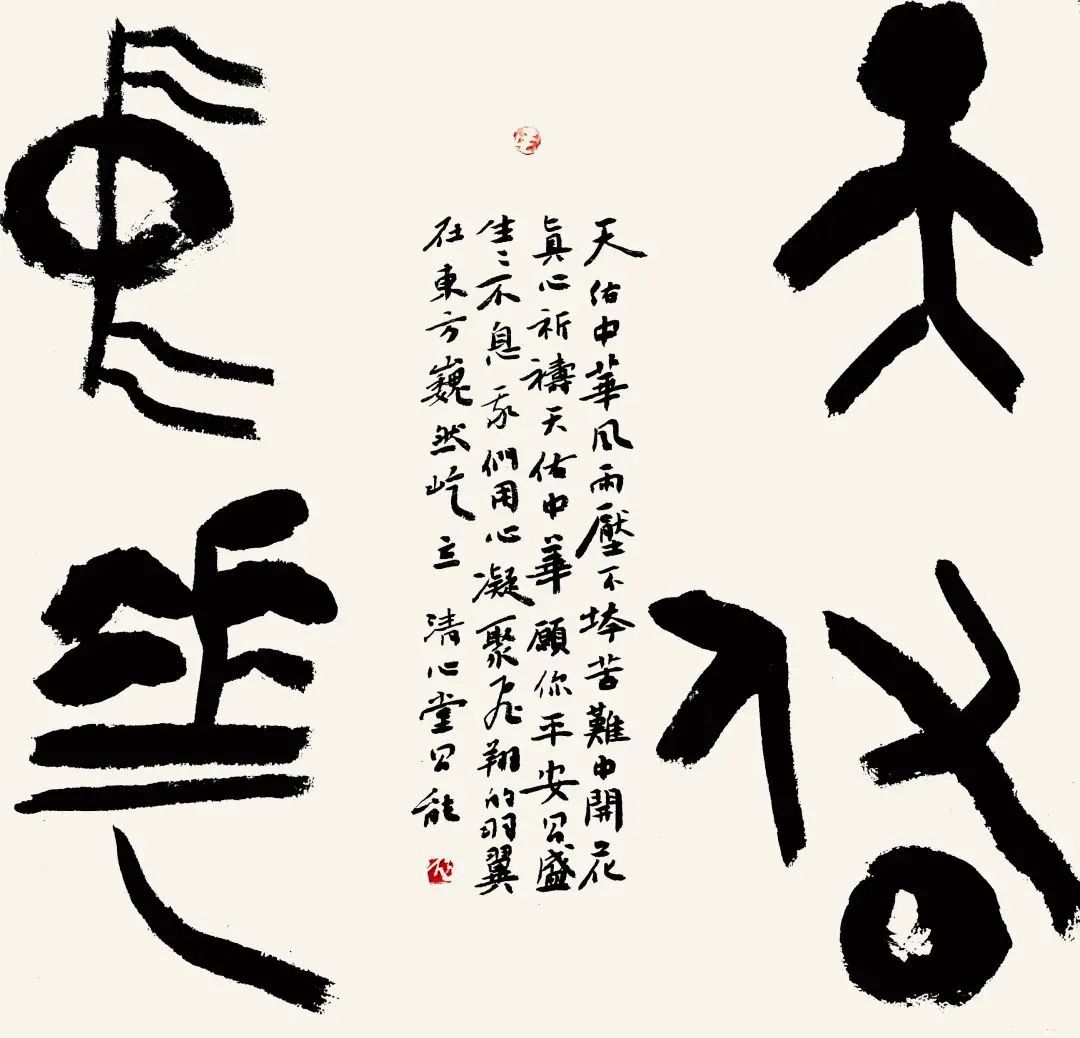 天佑
中華
天佑中華风雨壓不垮苦難中開花
眞心祈禱天佑中華願你平安昌盛
生〻不息我們用心凝聚飛翔的羽翼
在東方巍然屹立 清心堂昌能